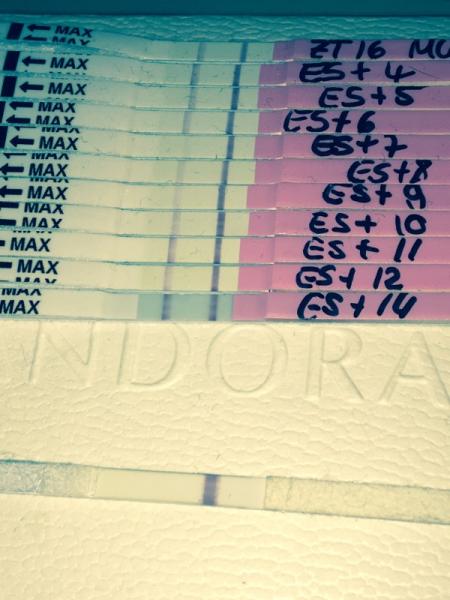 ← MAX ZT16
← MAX ES+4
← MAX ES+5
← MAX ES+6
← MAX ES+7
← MAX ES+8
← MAX ES+9
← MAX ES+10
← MAX ES+11
← MAX ES+12
MAX ES+14
NDORA